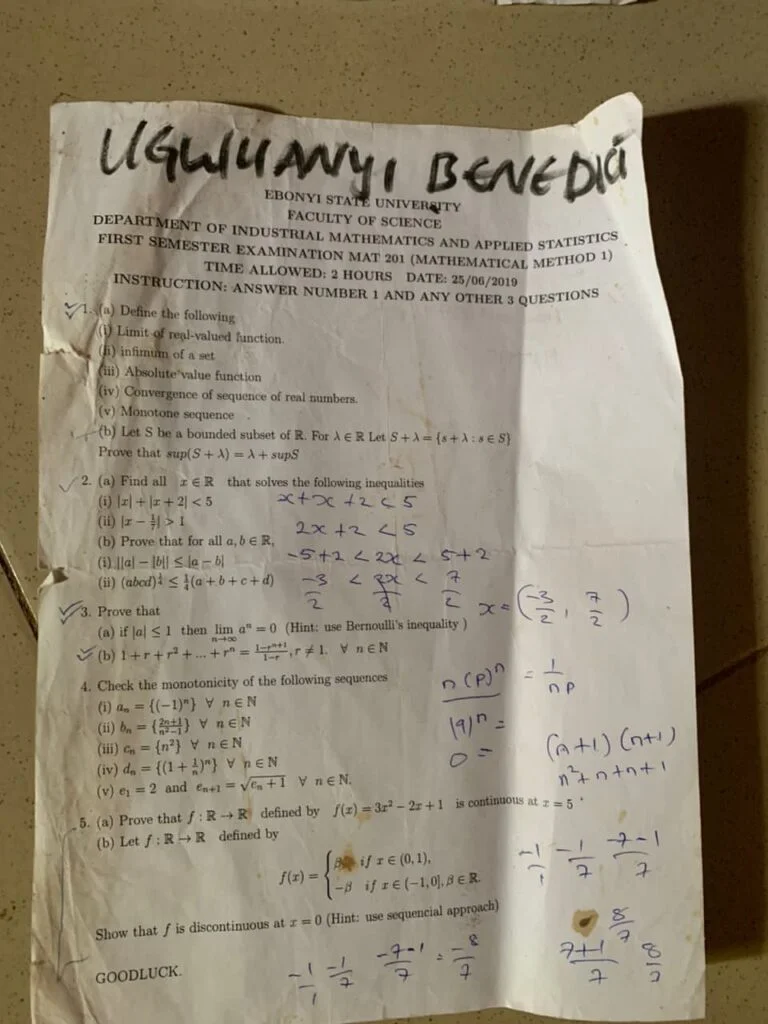 UGWUANYI BENEDICT
EBONYI STATE UNIVERSITY
FACULTY OF SCIENCE
DEPARTMENT OF INDUSTRIAL MATHEMATICS AND APPLIED STATISTICS
FIRST SEMESTER EXAMINATION MAT 201 (MATHEMATICAL METHOD 1)
TIME ALLOWED: 2 HOURS DATE: 25/06/2019
INSTRUCTION: ANSWER NUMBER 1 AND ANY OTHER 3 QUESTIONS
1. (a) Define the following
(i) Limit of real-valued function.
(ii) infimum of a set
(iii) Absolute value function
(iv) Convergence of sequence of real numbers.
(v) Monotone sequence
(b) Let S be a bounded subset of ℝ. For λ ∈ ℝ Let S + λ = {s + λ : s ∈ S}
Prove that sup(S + λ) = λ + supS
2. (a) Find all x ∈ ℝ that solves the following inequalities
(i) |x| + |x + 2| < 5 x+x+2 < 5
(ii) |x − 1/7| > 1 2x+2 < 5
(b) Prove that for all a, b ∈ ℝ,
(i) ||a| − |b|| ≤ |a − b| -5+2 < 2x < 5+2
(ii) (abcd)^1/4 ≤ 1/4(a + b + c + d) -3/2 < 2x/2 < 7/2 x = (-3/2, 7/2)
3. Prove that
(a) if |a| ≤ 1 then lim n→∞ a^n = 0 (Hint: use Bernoulli's inequality )
(b) 1 + r + r² + ... + r^n = 1−r^n+1/1−r, r ≠ 1. ∀ n ∈ ℕ
4. Check the monotonicity of the following sequences n(p)^n = 1/np
(i) a_n = {(−1)^n} ∀ n ∈ ℕ
(ii) b_n = {2n+1/n²−1} ∀ n ∈ ℕ |9|^n =
(iii) c_n = {n²} ∀ n ∈ ℕ 0 = (n+1)(n+1)
(iv) d_n = {(1 + 1/n)^n} ∀ n ∈ ℕ n²+n+n+1
(v) e_1 = 2 and e_n+1 = √e_n + 1 ∀ n ∈ ℕ.
5. (a) Prove that f : ℝ → ℝ defined by f(x) = 3x² − 2x + 1 is continuous at x = 5
(b) Let f : ℝ → ℝ defined by
f(x) = { β if x ∈ (0, 1), -1/1 -1/7 -7-1/7
−β if x ∈ (−1, 0], β ∈ ℝ.
Show that f is discontinuous at x = 0 (Hint: use sequencial approach) 8/7
7+1/7 8/7
GOODLUCK. -1/1 -1/7 -7-1/7 = -8/7